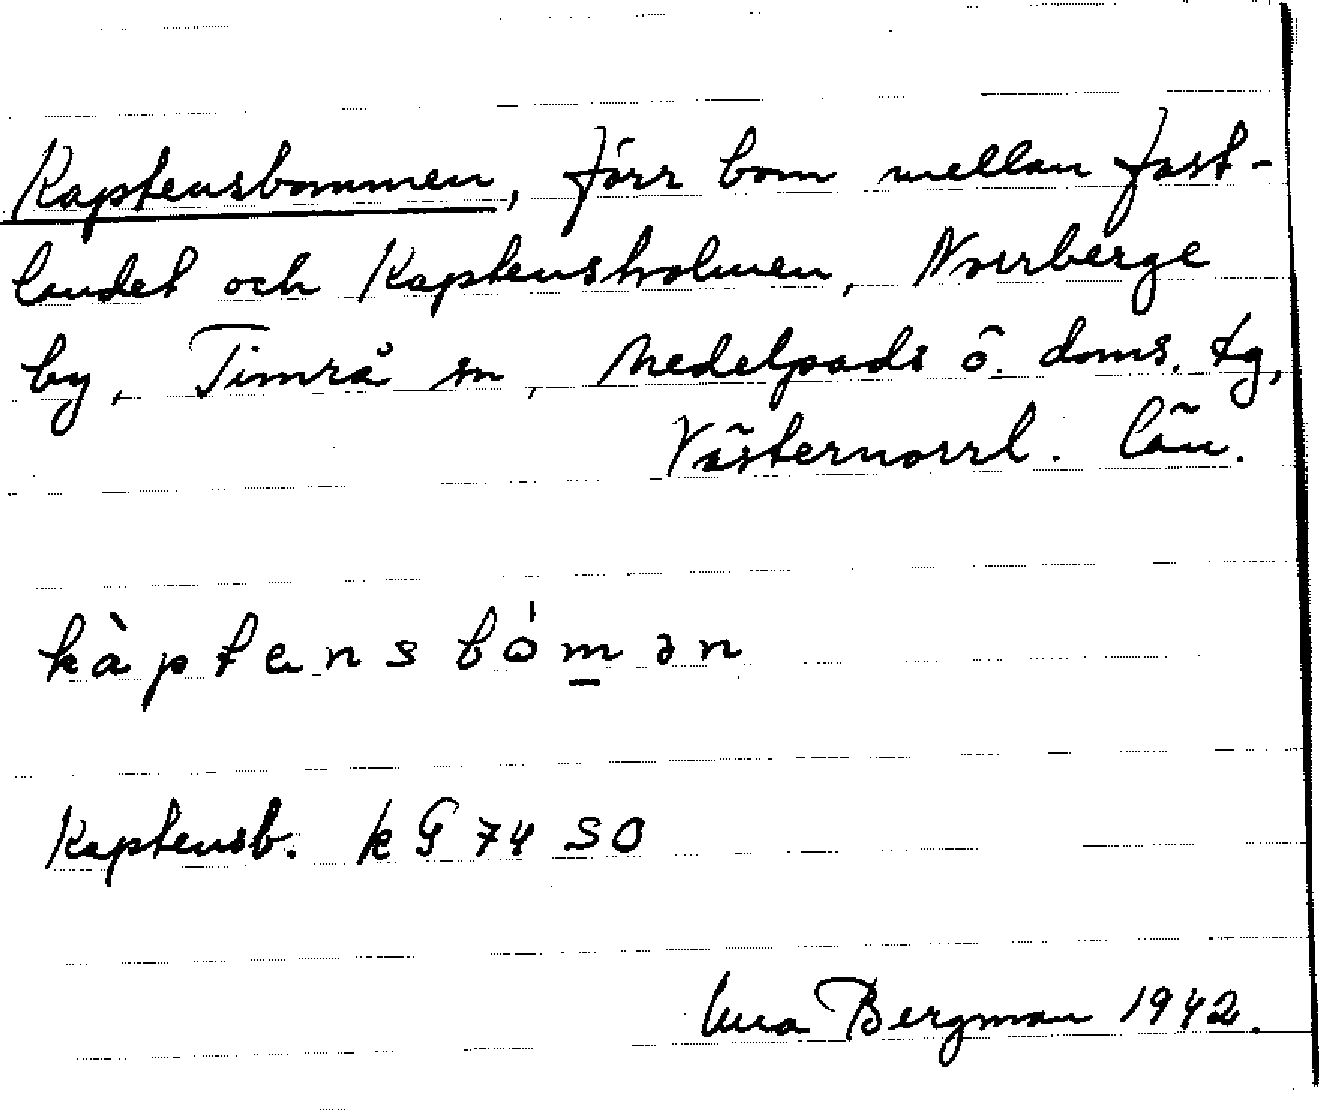 Kaptensbommen, förr bom mellan fast-
landet och Kaptensholmen, Norrberge
by, Timrå sn, Medelpads ö. doms. tg,
Västernorrl. län.
kàptensbómən
Kaptensb. k G 74 SO
Bergman 1942.